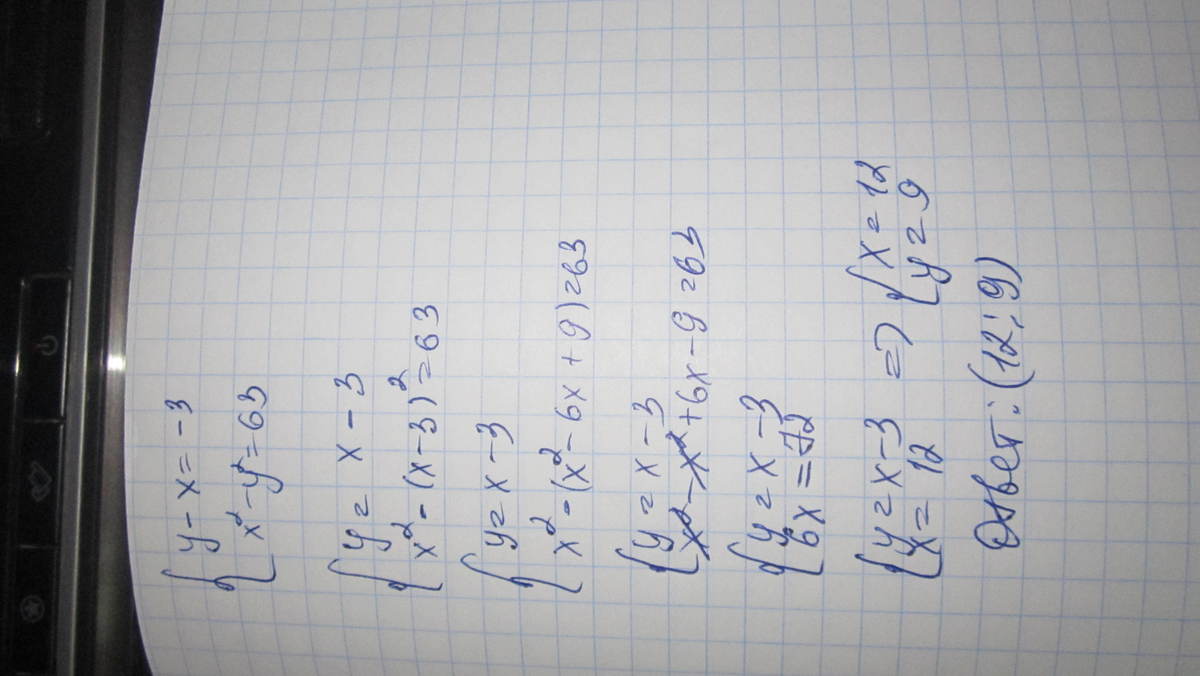 y - x = -3
x² - y² = 63
y = x - 3
x² - (x - 3)² = 63
y = x - 3
x² - (x² - 6x + 9) = 63
y = x - 3
x² - x² + 6x - 9 = 63
y = x - 3
6x = 72
y = x - 3 => x = 12
x = 12 y = 9
Ответ: (12; 9)